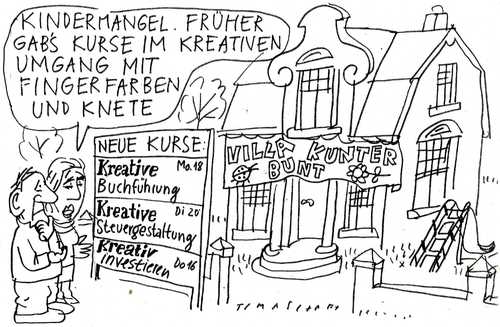 KINDERMANGEL. FRÜHER
GAB'S KURSE IM KREATIVEN
UMGANG MIT
FINGERFARBEN
UND KNETE
NEUE KURSE:
Kreative Mo. 18
Buchführung
Kreative Di 20
Steuergestaltung
Kreativ
investieren Do 16
VILLA KUNTER
BUNT